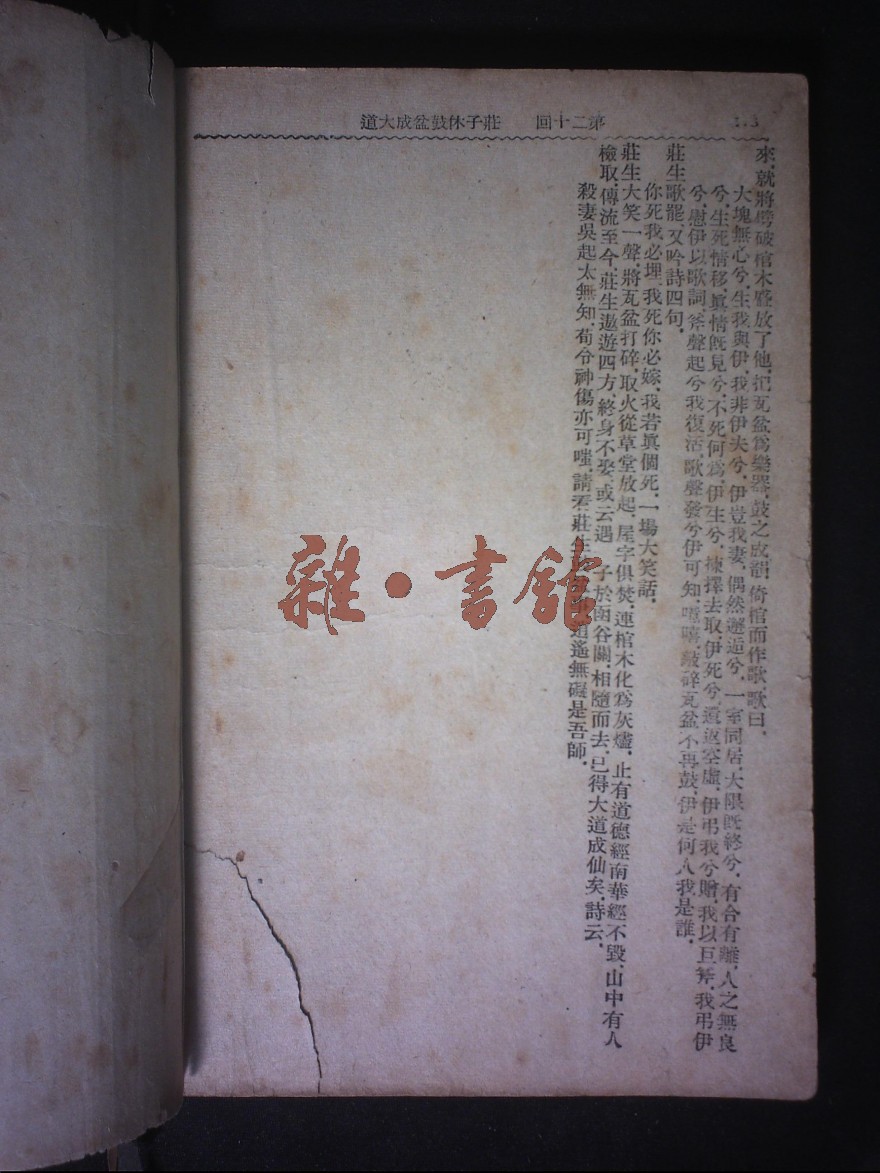 第二十回　莊子休鼓盆成大道
來,就將劈破棺木盛放了他,把瓦盆爲樂器,鼓之成韻,倚棺而作歌,歌曰,
大塊無心兮,生我與伊,我非伊夫兮,伊豈我妻,偶然邂逅兮,一室同居,大限旣終兮,有合有離,人之無良
兮,生死情移,眞情旣見兮,不死何爲,伊生兮,揀擇去取,伊死兮,還返空虛,伊弔我兮,贈我以巨斧,我弔伊
兮,慰伊以歌詞,斧聲起兮我復活,歌聲發兮伊可知,噫嘻,敲碎瓦盆不再鼓,伊是何人我是誰,
莊生歌罷,又吟詩四句,
你死我必埋,我死你必嫁,我若眞個死,一場大笑話,
莊生大笑一聲,將瓦盆打碎,取火從草堂放起,屋宇俱焚,連棺木化爲灰燼,止有道德經南華經不毀,山中有人
檢取,傳流至今,莊生遨遊四方,終身不娶,或云遇 子於函谷關,相隨而去,已得大道成仙矣,詩云,
殺妻吳起太無知,荀令神傷亦可嗤,請看莊生 逍遙無礙是吾師,
雜·書館